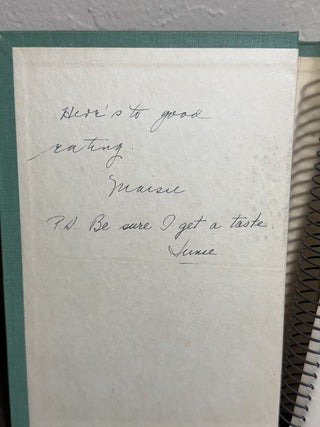 Here's to good
eating.
Maisie
P.S. Be sure I get a taste.
Junie